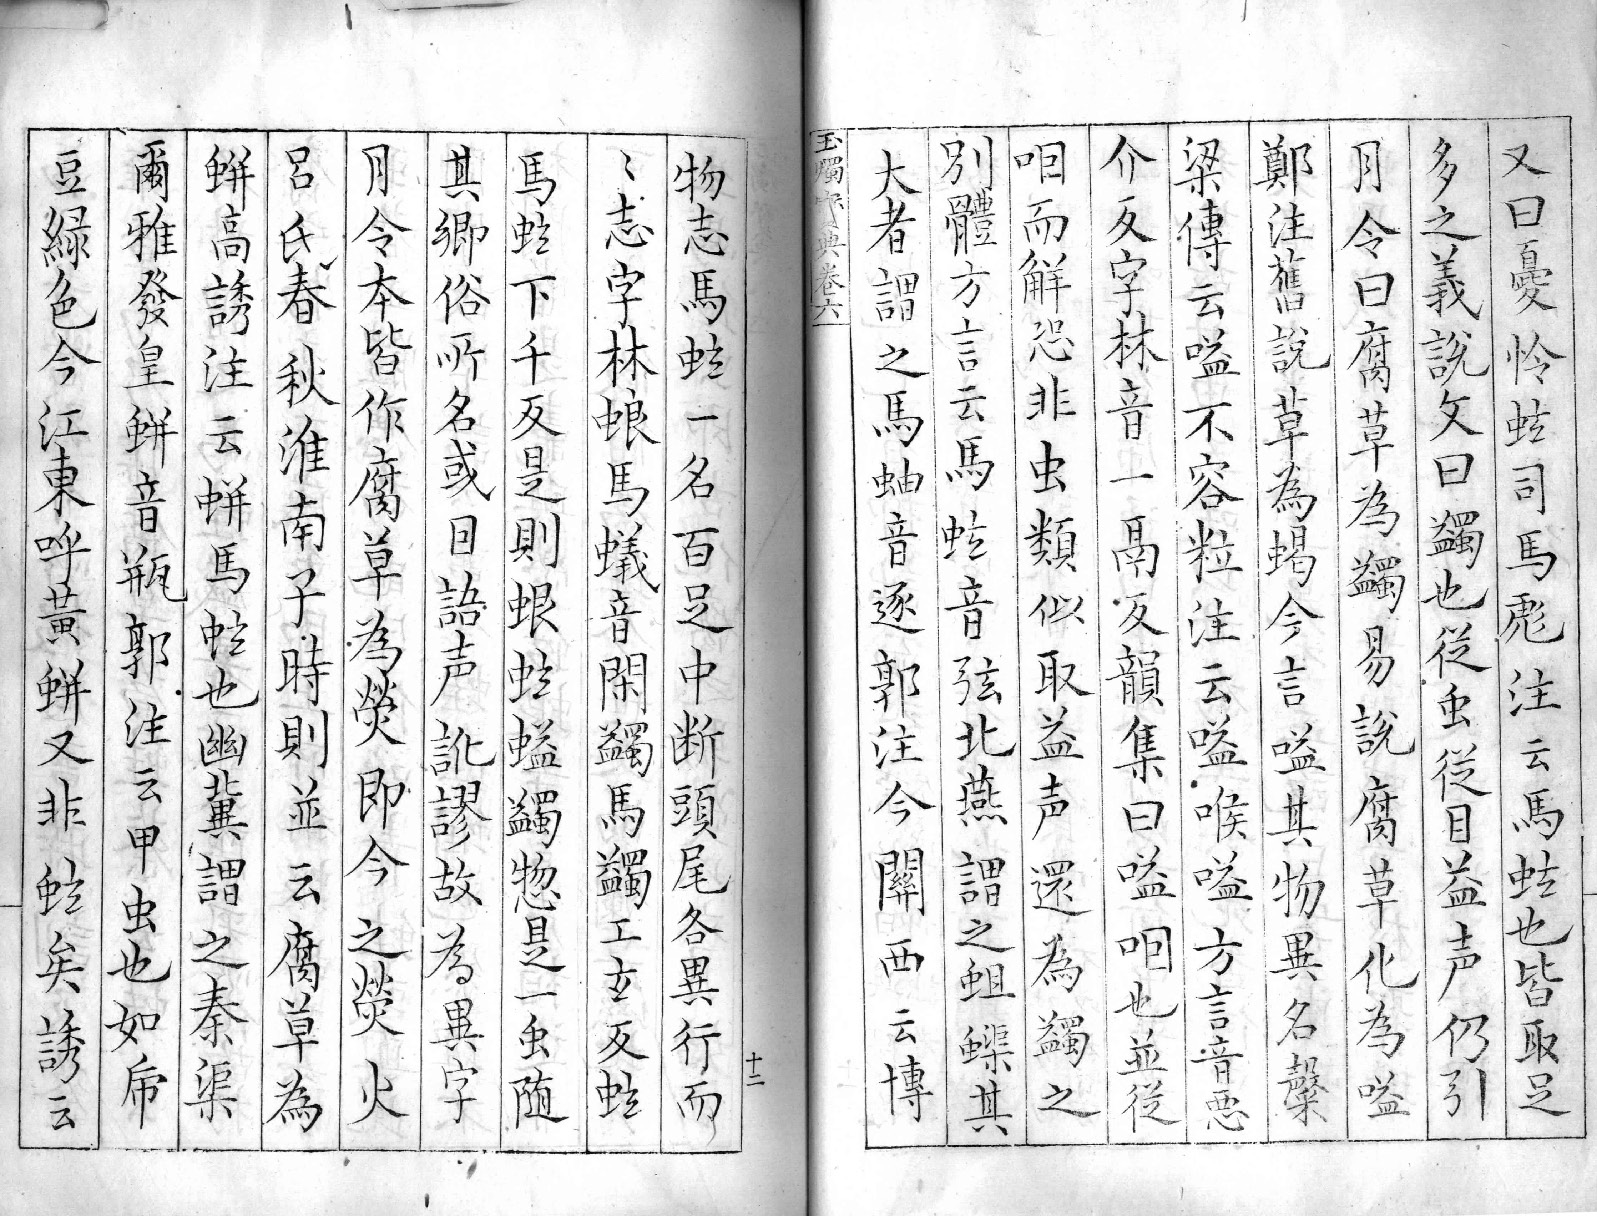 又曰憂怜蚿司馬彪注云馬蚿也皆取足
多之義說文曰蠲也從虫從目益声仍引
月令曰腐草為蠲易說腐草化為嗌
鄭注舊說草為蝎今言嗌其物異名糳
梁傳云嗌不容粒注云嗌喉嗌方言音惡
介反字林音一鬲反韻集曰嗌咽也並從
咽而解恐非虫類似取益声還為蠲之
別體方言云馬蚿音弦北燕謂之蛆蟝其
大者謂之馬蚰音逐郭注今關西云博
玉燭寶典卷六
十二
物志馬蚿一名百足中断頭尾各異行而
〻志字林蜋馬蟻音閑蠲馬蠲工玄反蚿
馬蚿下千反是則蛝蚿螠蠲惣是一虫随
其鄉俗所名或曰語声訛謬故為異字
月令本皆作腐草為熒即今之熒火
呂氏春秋淮南子時則並云腐草為
蛢高誘注云蛢馬蚿也幽冀謂之秦渠
爾雅發皇蛢音瓶郭注云甲虫也如帍
豆緑色今江東呼黃蛢又非蚿矣誘云